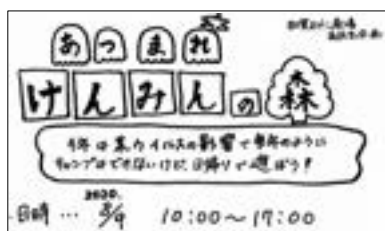 あつまれ
けんみんの森
今年は某ウイルスの影響で毎年のように
キャンプはできないけど、日帰りで遊ぼう!
2020.
日時… 8/9 10:00〜17:00